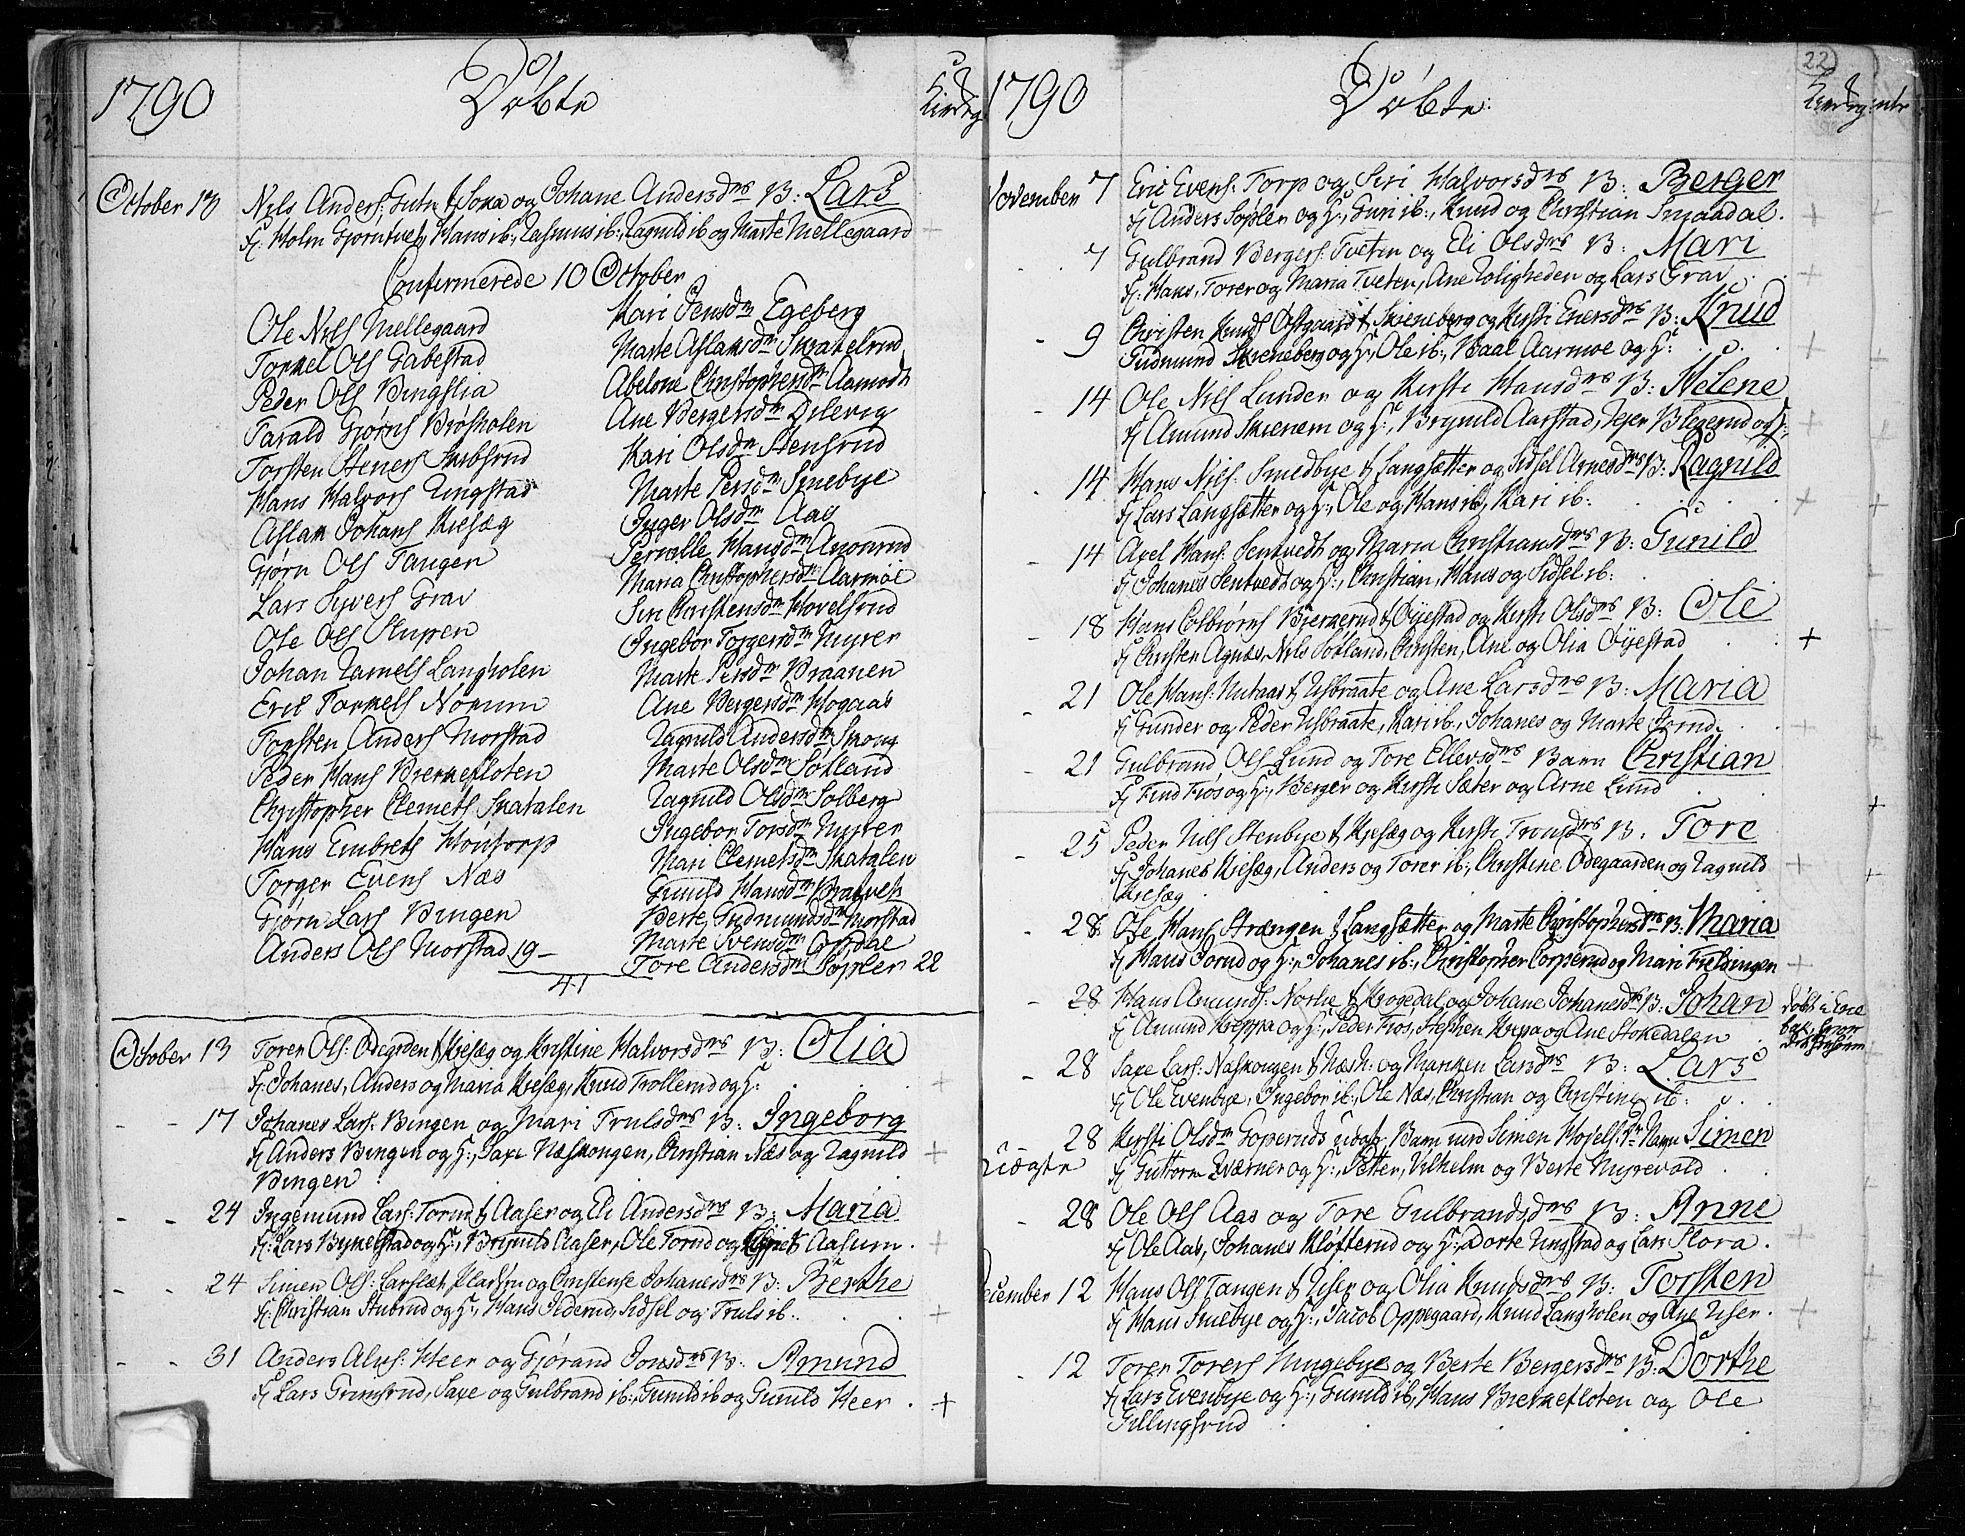 1790 Døbte Kirkeg:
October 10 Nils Anders: Guten f Sona og Johane Andersdrs B: Lars
fJ: Holm Gjerntvet, Hans ib:, Rasmus ib:, Ragnild ib og Marte Mellegaard
Confirmerede 10 October
Ole Nils Mellegaard
Torkel Ols Gabestad
Peder Ols Bingslia
Tarald Gjørns Brøsholen
Torsten Steners
Hans Halvors Ringstad
Aslak Johans Kiesæg
Gjørn Ols Tangen
Lars Syvers Grav
Ole Ols Slupen
Johan Daniels Langholen
Eric Torkels Norum
Torsten Anders Morstad
Peder Hans Bierkefloten
Christopher Clemets Skatalen
Hans Embrets Høntorp
Torger Evens Næs
Gjørn Lars Bingen
Anders Ols Morstad 19 -
Kari Jensdr Egeberg
Marte Aslaksdr Skratelrud
Abelone Christophersdr Aamodt
Ane Bergersdr Dilevig
Kari Olsdr Stensrud
Marte Persdr Smebye
Inger Olsdr Aas
Pernille Hansdr Anonrud
Maria Christophersdr Aarmoe
Siri Christensdr Hovelsrud
Ingebor Torgersdr Myrer
Marte Persdr Braanen
Ane Bergersdr Hogaas
Ragnild Andersdr Skoug
Marte Olsdr Sotland
Ragnild Olsdr Solberg
Ingebor Torsdr Myrer
Mari Clemetsdr Skatalen
Gunild Hansdr Bratvet
Berte Gudmundsdr Morstad
Marte Svensdr Opdal
Tore Andersdr Søpler 22
41
October 13 Torer Ols: Ødegrden f Kiesæg og Kristine Halvorsdrs B: Olia
fJ: Johanes, Anders og Maria Kiesæg, Knud Trollerud og H:
- - 17 Johanes Lars: Bingen og Mari Trulsdrs B: Ingeborg
fJ Anders Bingen og H:, Saxe Næskongen, Christian Næs og Ragnild
Bingen
- - 24 Ingemund Lars: Torud f Aaser og Eli Andersdrs B: Maria
fJ: Lars Bykelstad og H:, Brynild Aaser, Ole Torud og Aasum.
- - 24 Simen Ols: og Christense Johanesdrs B: Berthe
fJ: Christian Stubrud og H:, Hans Siderud, Sidsel og Truls ib:
- - 31 Anders Alvs: Heer og Gjørand Jonsdrs B: Amund
fJ Lars Grimsrud, Saxe og Gulbrand ib:, Gunild ib og Gunild Heer.
1790 Døbte: Kirkeg:
22
November 7 Eric Evens: Torp og Siri Halvorsdrs B: Berger
fJ Anders Søpler og H:, Guri ib:, Knud og Christian Smaadal.
- 7 Gulbrand Bergers: Tveten og Eli Olsdrs B: Mari
fJ: Hans, Torer og Maria Tveten, Ane Roligheden og Lars Grav
- 9 Christen Knuds Østgaard f Skieneberg og Kirsti Enersdrs B: Knud
Gudmund Skieneberg og H:, Ole ib:, Baal Aarmoe og H:
- 14 Ole Nils Lunden og Kirsti Hansdrs B: Helene
fJ Amund Skienem og H:, Brynild Aarstad, Rejer Blegerud og H:
- 14 Hans Nils: Smedbye f Langsætter og Sidsel Arnesdrs B: Ragnild
fJ Lars Langsætter og H:, Ole og Hans ib:, Kari ib:
- 14 Axel Hans: Sentvedt og Maria Christiansdrs B: Gunild
fJ Johanes Sentvedt og H:, Christian, Hans og Sidsel ib:
- 18 Hans Colbiørns Bierkerud f Øyestad og Kirsti Olsdrs B: Ole
fJ Christen Agnæs, Nils Sotland, Christen, Ane og Olia Øyestad
- 21 Ole Hans: f Usbraate og Ane Larsdrs B: Maria
fJ Gunder og Peder Usbraate, Kari ib:, Johanes og Marte Jorud
- 21 Gulbrand Ols Lund og Tore Ellevsdrs Barn Christian
fJ Find Frøs og H:, Berger og Kirsti Sæter og Arne Lund
- 25 Peder Nils Stenbye f Kiesæg og Kirsti Tronsdrs B: Tore
fJ Johanes Kiesæg, Anders og Torer ib:, Christine Ødegaarden og Ragnild
Kiesæg
- 28 Ole Hans Strængen f Langsætter og Marte Christophersdrs B: Maria
fJ Hans Jorud og H:, Johanes ib:, Christopher Corperud og Mari Fieldingen
- 28 Hans Amunds: Norbe f Krosedal og Johane Johanesdrs B: Johan
fJ Amund Kreppa og H:, Peder Frøs, Stephen Krepa og Ane Stokedalen
døbt i
- 28 Saxe Lars: Naskongen f Næsk: og Mariken Larsdrs B: Lars
fJ Ole Evenbye, Ingebor ib:, Ole Næs, Christian og Christine ib:
- 28 Kirsti Olsdr Goperuds uægte Barn med Simen Hovels: Navn Simen
Uægte fJ Guttorm Tværner og H:, Petter, Vilhelm og Berte Myrevold
- 28 Ole Ols Aas og Tore Gulbrandsdrs B: Anne
fJ Ole Aas, Johanes Kløfterud og H:, Dorte Ringstad og Lars Flora.
December 12 Hans Ols Tangen f Uiser og Olia Knudsdrs B: Torsten
fJ Hans Smebye og H:, Jacob Oppegaard, Knud Langholen og Ane Uiser.
- 12 Torer Torers Ningebye og Berte Bergersdrs B: Dorthe
fJ Lars Evenbye og H:, Gunild ib, Hans Bierkefloten og Ole
Gillingsrud